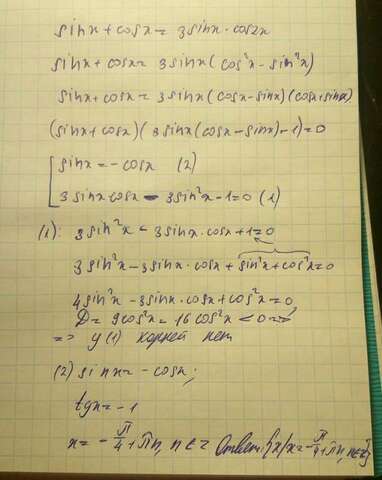 sinx + cosx = 3sinx · cos2x
sinx + cosx = 3sinx (cos²x - sin²x)
sinx + cosx = 3sinx (cosx - sinx) (cosx + sinx)
(sinx + cosx) (3sinx (cosx - sinx) - 1) = 0
[ sinx = - cosx (2)
3sinx cosx - 3sin²x - 1 = 0 (1)
(1): 3sin²x - 3sinx · cosx + 1 = 0
3sin²x - 3sinx · cosx + sin²x + cos²x = 0
4sin²x - 3sinx · cosx + cos²x = 0
D = 9cos²x = 16cos²x < 0 =>
=> у (1) корней нет
(2) sinx = - cosx;
tgx = - 1
x = - π/4 + πn, n ∈ Z Ответ: {x/x = - π/4 + πn, n ∈ Z}